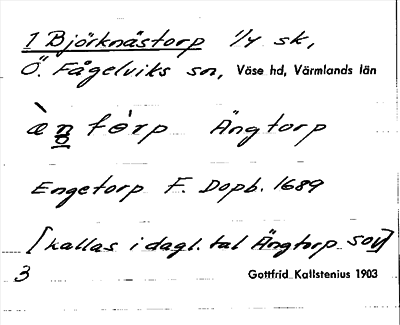 1 Björknästorp 1/4 sk,
Ö. Fågelviks sn, Väse hd, Värmlands län
Ängtorp
Engetorp F. Dopb. 1689
[kallas i dagl. tal Ängtorp
3 Gottfrid Kallstenius 1903